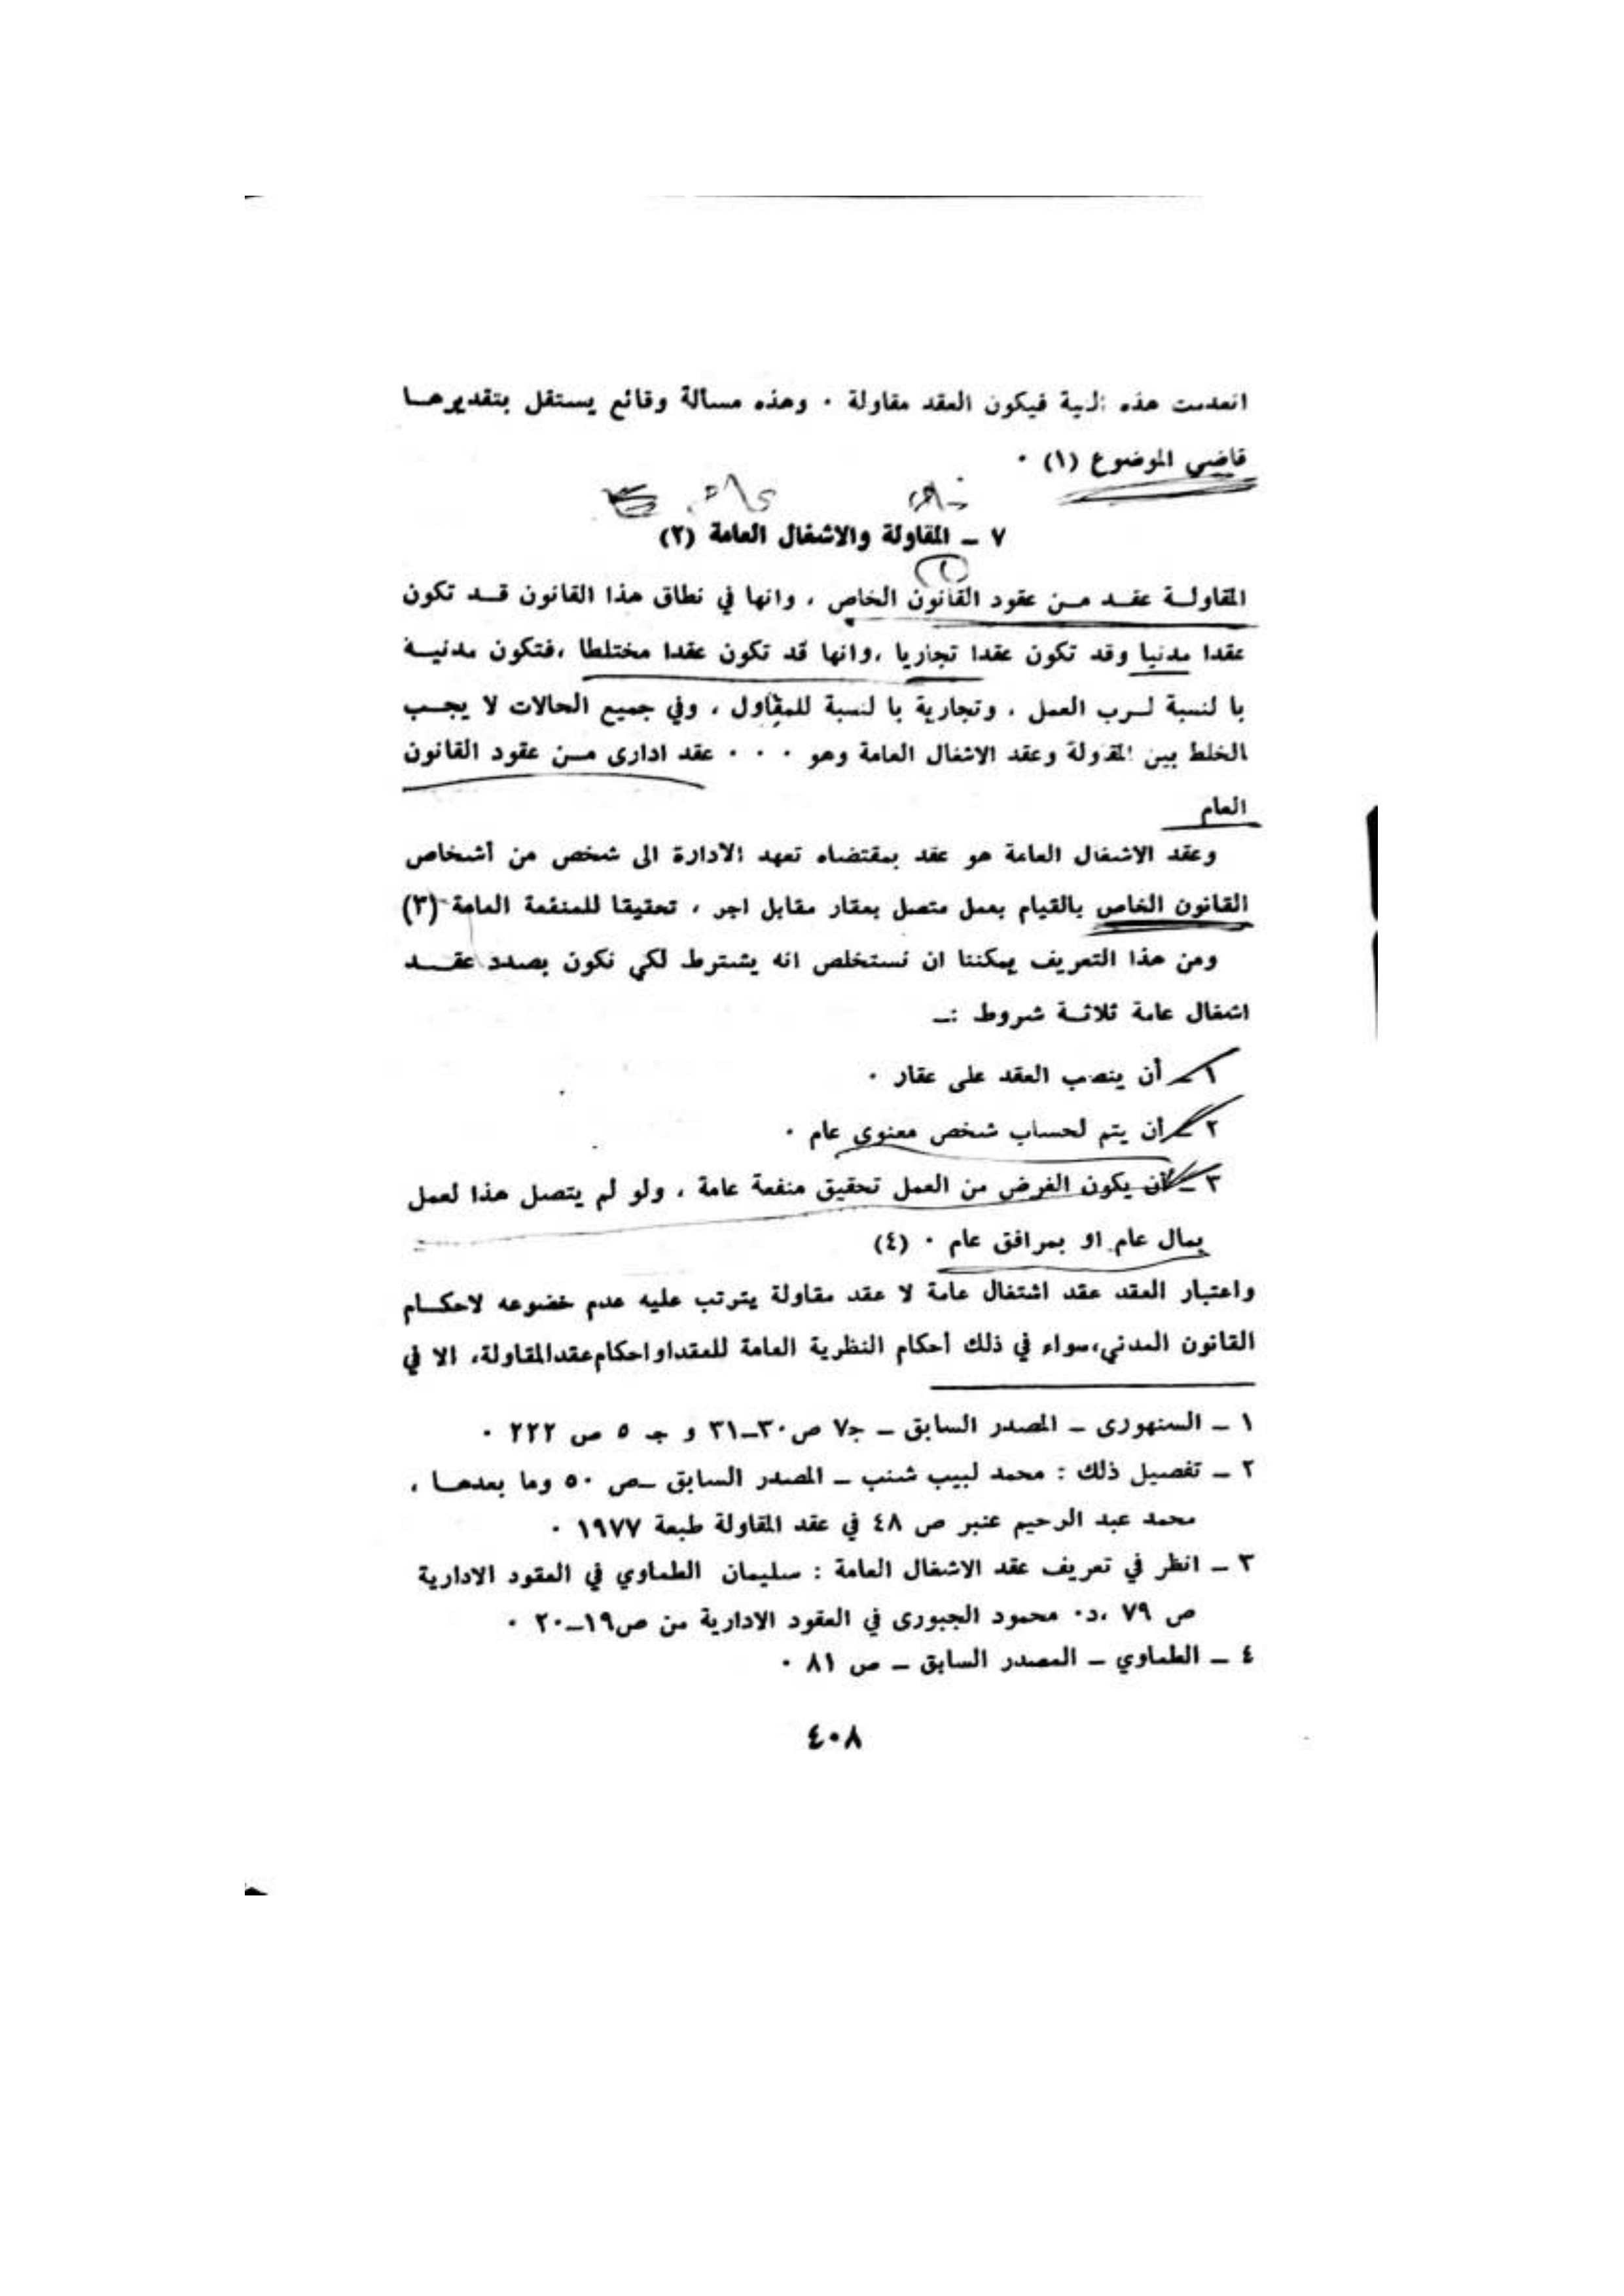 انعدمت هذه النية فيكون العقد مقاولة ٠ وهذه مسألة وقائع يستقل بتقديرهـا
قاضي الموضوع (١) ٠
٧ ــ المقاولة والاشغال العامة (٢)
المقاولـة عقـد مـن عقود القانون الخاص ، وانها في نطاق هذا القانون قـد تكون
عقدا مدنيا وقد تكون عقدا تجاريا ،وانها قد تكون عقدا مختلطا ،فتكون مدنيـة
با لنسبة لـرب العمل ، وتجارية با لنسبة للمقاول ، وفي جميع الحالات لا يجـب
الخلط بين المقاولة وعقد الاشغال العامة وهو ٠ ٠ ٠ عقد ادارى مـن عقود القانون
العام
وعقد الاشغال العامة هو عقد بمقتضاه تعهد الادارة الى شخص من أشخاص
القانون الخاص بالقيام بعمل متصل بعقار مقابل اجر ، تحقيقا للمنفعة العامة (٣)
ومن هذا التعريف يمكننا ان نستخلص انه يشترط لكي نكون بصدد عقـد
اشغال عامة ثلاثـة شروط :ــ
١ ــ أن ينصب العقد على عقار ٠
٢ ــ أن يتم لحساب شخص معنوي عام ٠
٣ ــ أن يكون الغرض من العمل تحقيق منفعة عامة ، ولو لم يتصل هذا لعمل
بمال عام او بمرافق عام ٠ (٤)
واعتبار العقد عقد اشتغال عامة لا عقد مقاولة يترتب عليه عدم خضوعه لاحكـام
القانون المدني،سواء في ذلك أحكام النظرية العامة للعقداواحكام عقدالمقاولة، الا في
١ ــ السنهورى ــ المصدر السابق ــ جـ٧ ص٣٠ــ٣١ و جـ ٥ ص ٢٢٢ ٠
٢ ــ تفصيل ذلك : محمد لبيب شنب ــ المصدر السابق ــص ٥٠ وما بعدهـا ،
محمد عبد الرحيم عنبر ص ٤٨ في عقد المقاولة طبعة ١٩٧٧ ٠
٣ ــ انظر في تعريف عقد الاشغال العامة : سليمان الطماوي في العقود الادارية
ص ٧٩ ،د٠ محمود الجبورى في العقود الادارية من ص١٩ــ٢٠ ٠
٤ ــ الطماوي ــ المصدر السابق ــ ص ٨١ ٠
٤٠٨